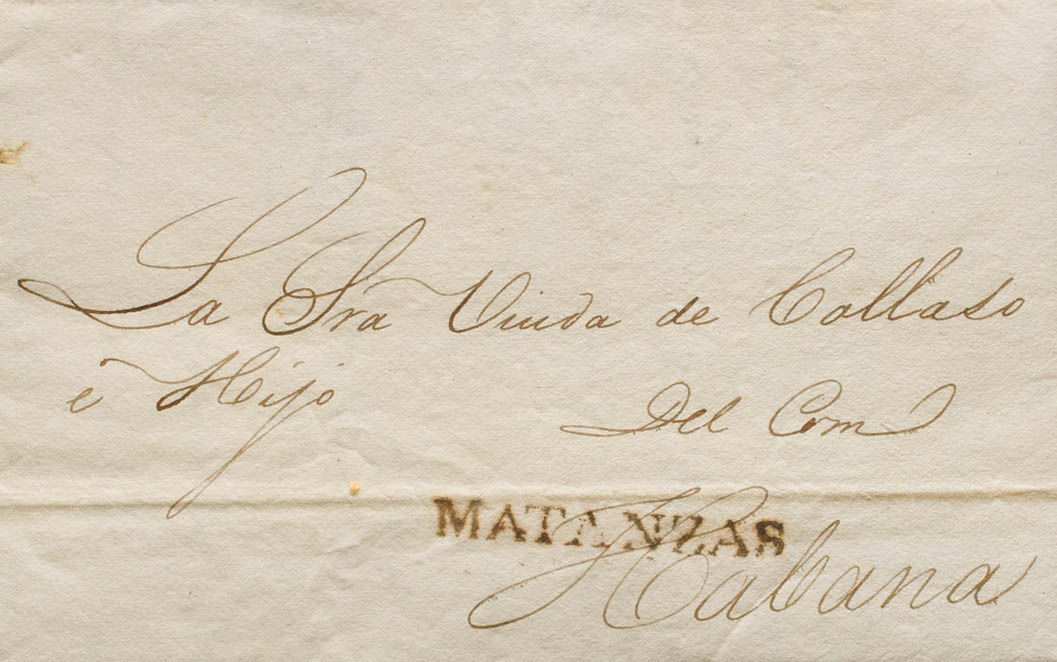 La Sra Viuda de Collaso
é Hijo Del Com
MATANZAS
Habana